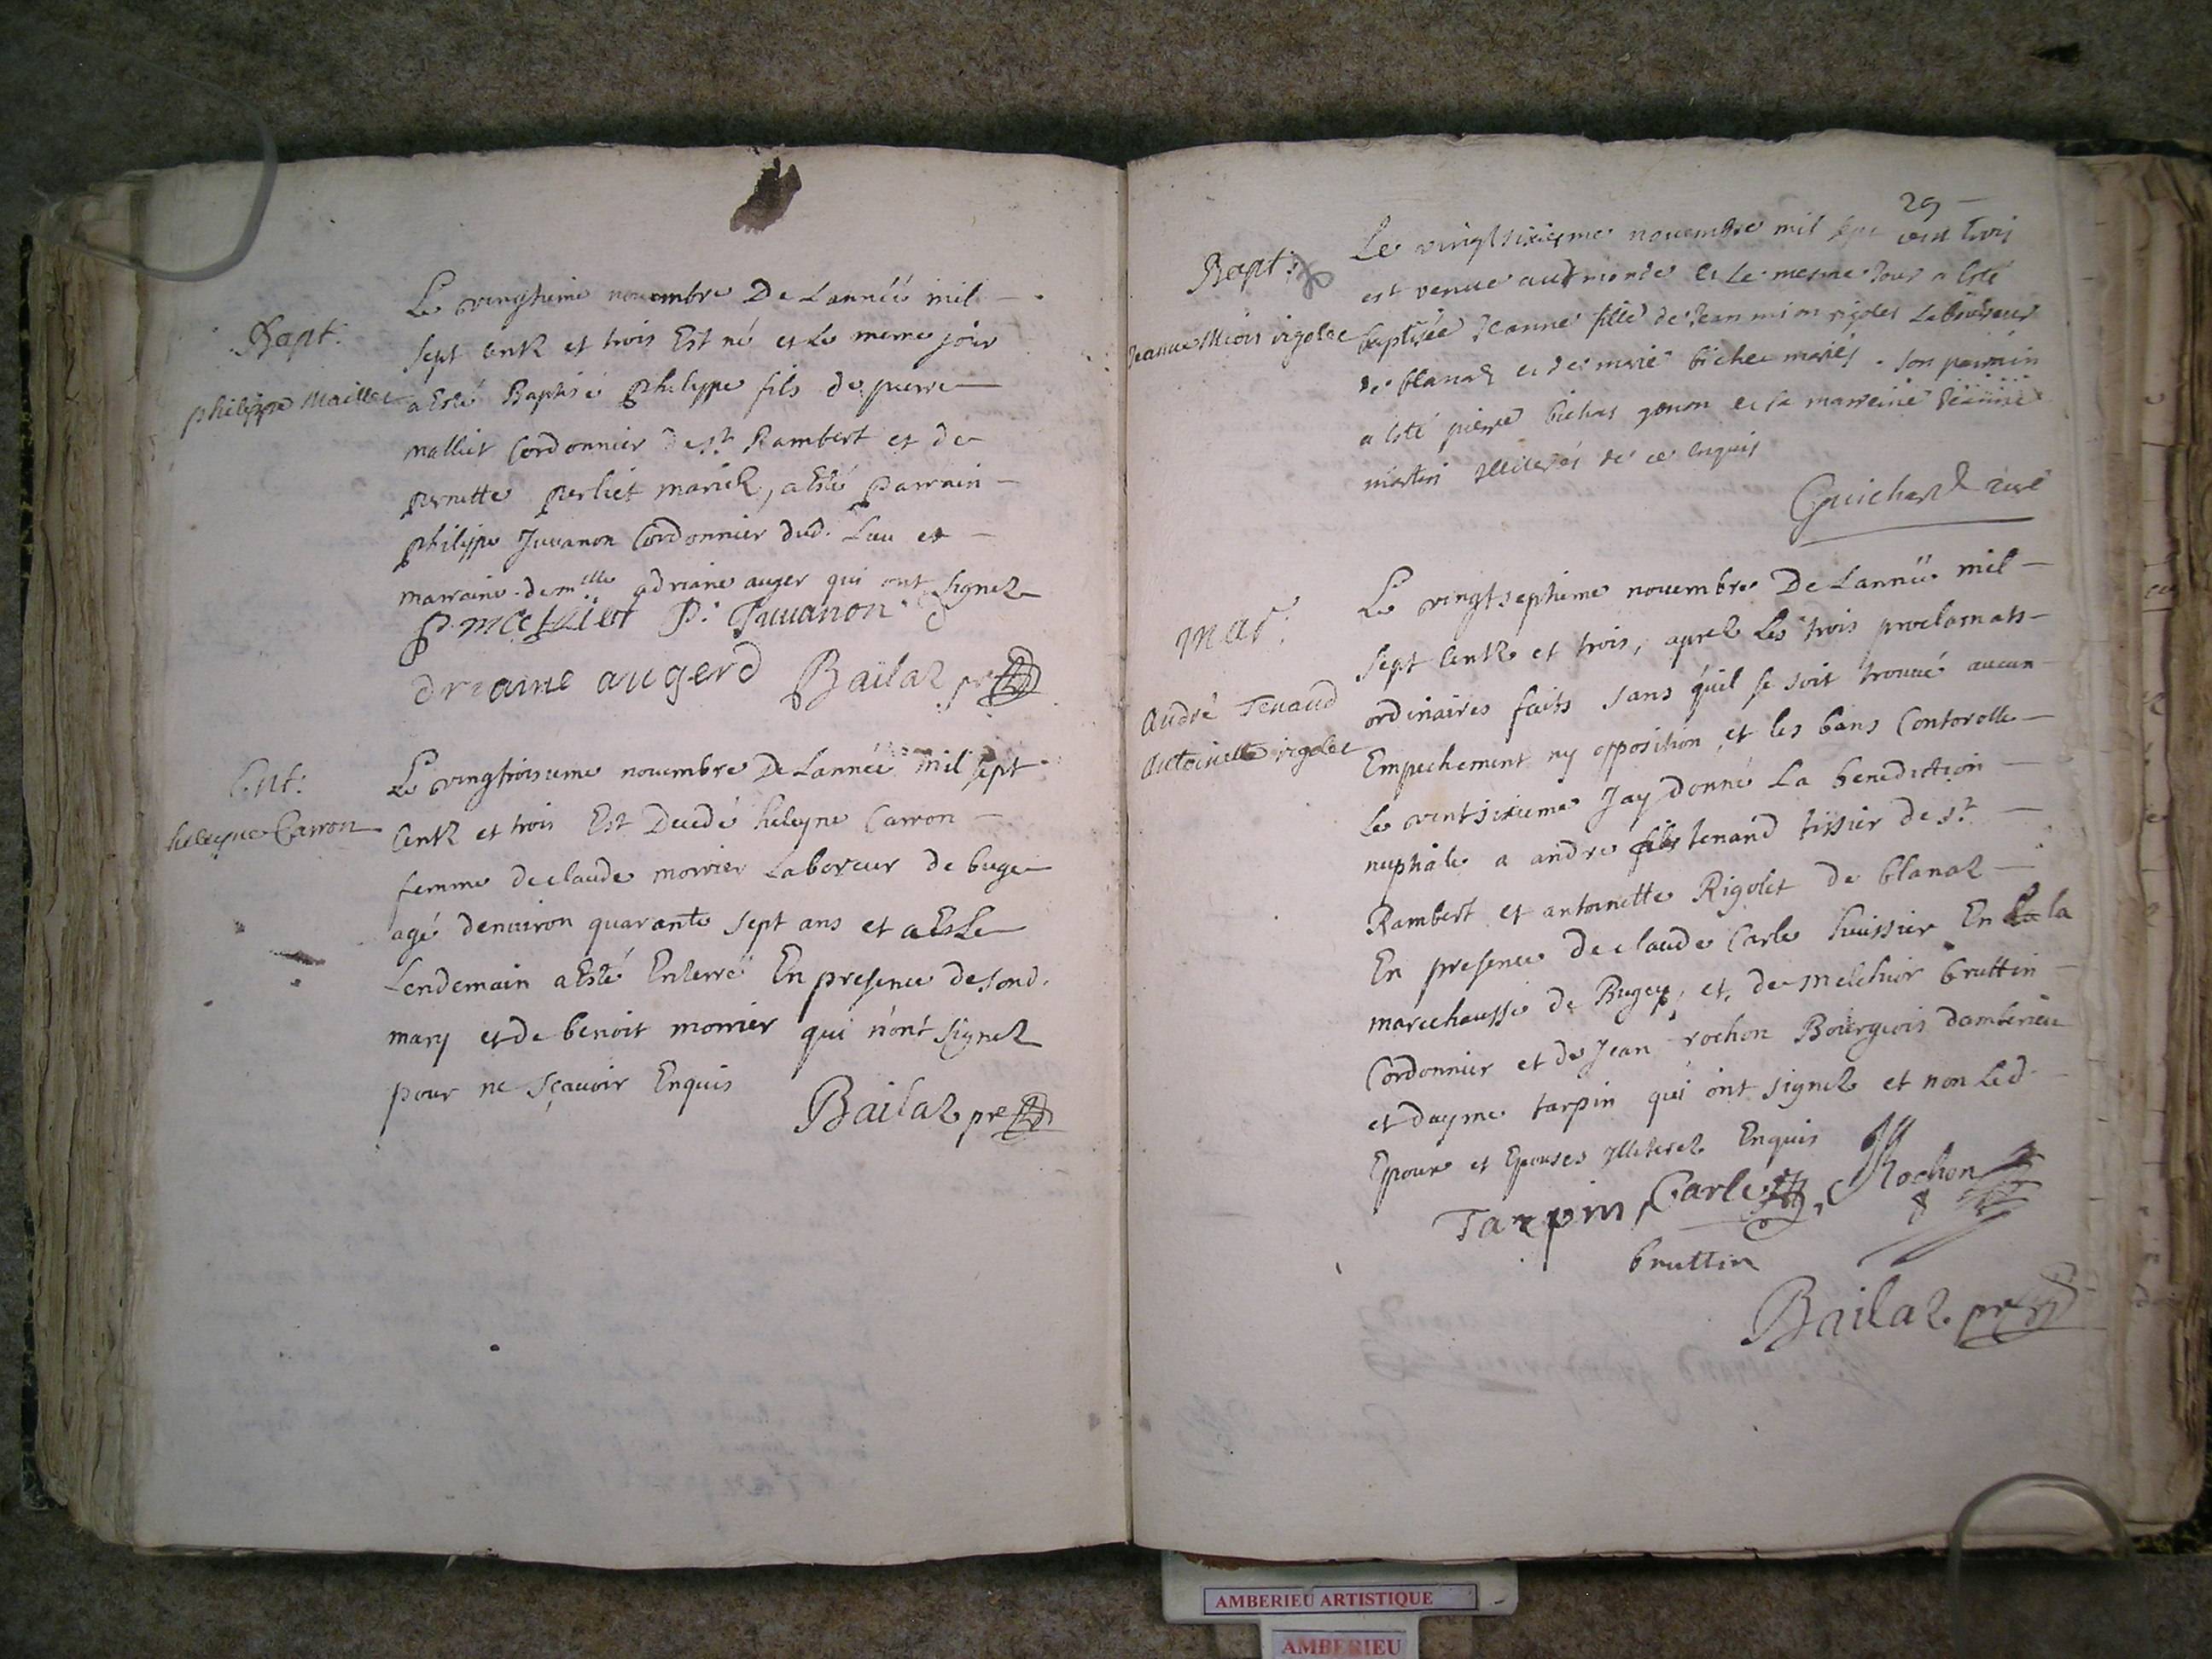 Bapt.
philippe Maillet
Le vingtieme novembre De Lanneé mil
sept centz et trois Est né et Le meme jour
a Esté Baptisé philippe fils de pierre
malliet Cordonnier de st Rambert et de
pernette perliet mariez, a Esté parrain
philippe Juvanon Cordonnier dud. Lieu et
marraine demlle adriane auger qui ont signez
P. malliet P. Juvanon
driaine augerd Bailaz pre
Ent:
heleyne Carron
Le vingtroisieme novembre De Lanneé mil sept
Centz et trois Est Decedé heleyne Carron
femme de claude morrier Laboreur de buge
agé denviron quarante sept ans et
Lendemain a Esté Enterré En presence de sond.
mary et de benoit morrier qui n'ont signez
pour ne sçavoir Enquis
Bailaz pre
29
Bapt:
Jeanne Mion rigolet
Le vingtsixiesme novembre mil sept cent trois
est venue au monde et le mesme Jour a esté
baptisée Jeanne fille de Jean mion rigolet Laboureur
de blanaz et de marie bichat mariés. son parrain
a esté pierre bichat genon et sa marreine Jeanne
martin illiterés de ce enquis
Guichard curé
mar.
André Tenand
Antoinette rigolet
Le vingtseptieme novembre De Lanneé mil
sept Centz et trois, aprez Les trois proclamats
ordinaires faits sans quil se soit trouvé aucun
Empechement ny opposition et les bans Contorolle
le ventsixieme Jay donné La benediction
nuptiale a andre fils tenand tissier de st
Rambert et antoinette Rigolet de blanaz
En presence de claude Carle huissier En La la
marechaussé de Bugey, et de melchior bruttin
Cordonnier et de Jean rochon Bourgeois damberieu
et dayme tarpin qui ont signez et non Led
Epoux et Epouses illiterez Enquis
Tarpin Carle Rochon
bruttin
Bailaz pre
AMBERIEU ARTISTIQUE
AMBERIEU